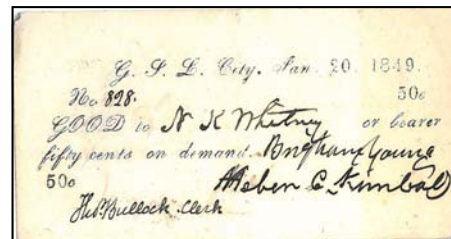 G. S. L. City, Jan. 20. 1849.
No. 828. 50c
GOOD to N K Whitney or bearer
fifty cents on demand. Brigham Young
50c Heber C. Kimball
Thos Bullock. Clerk